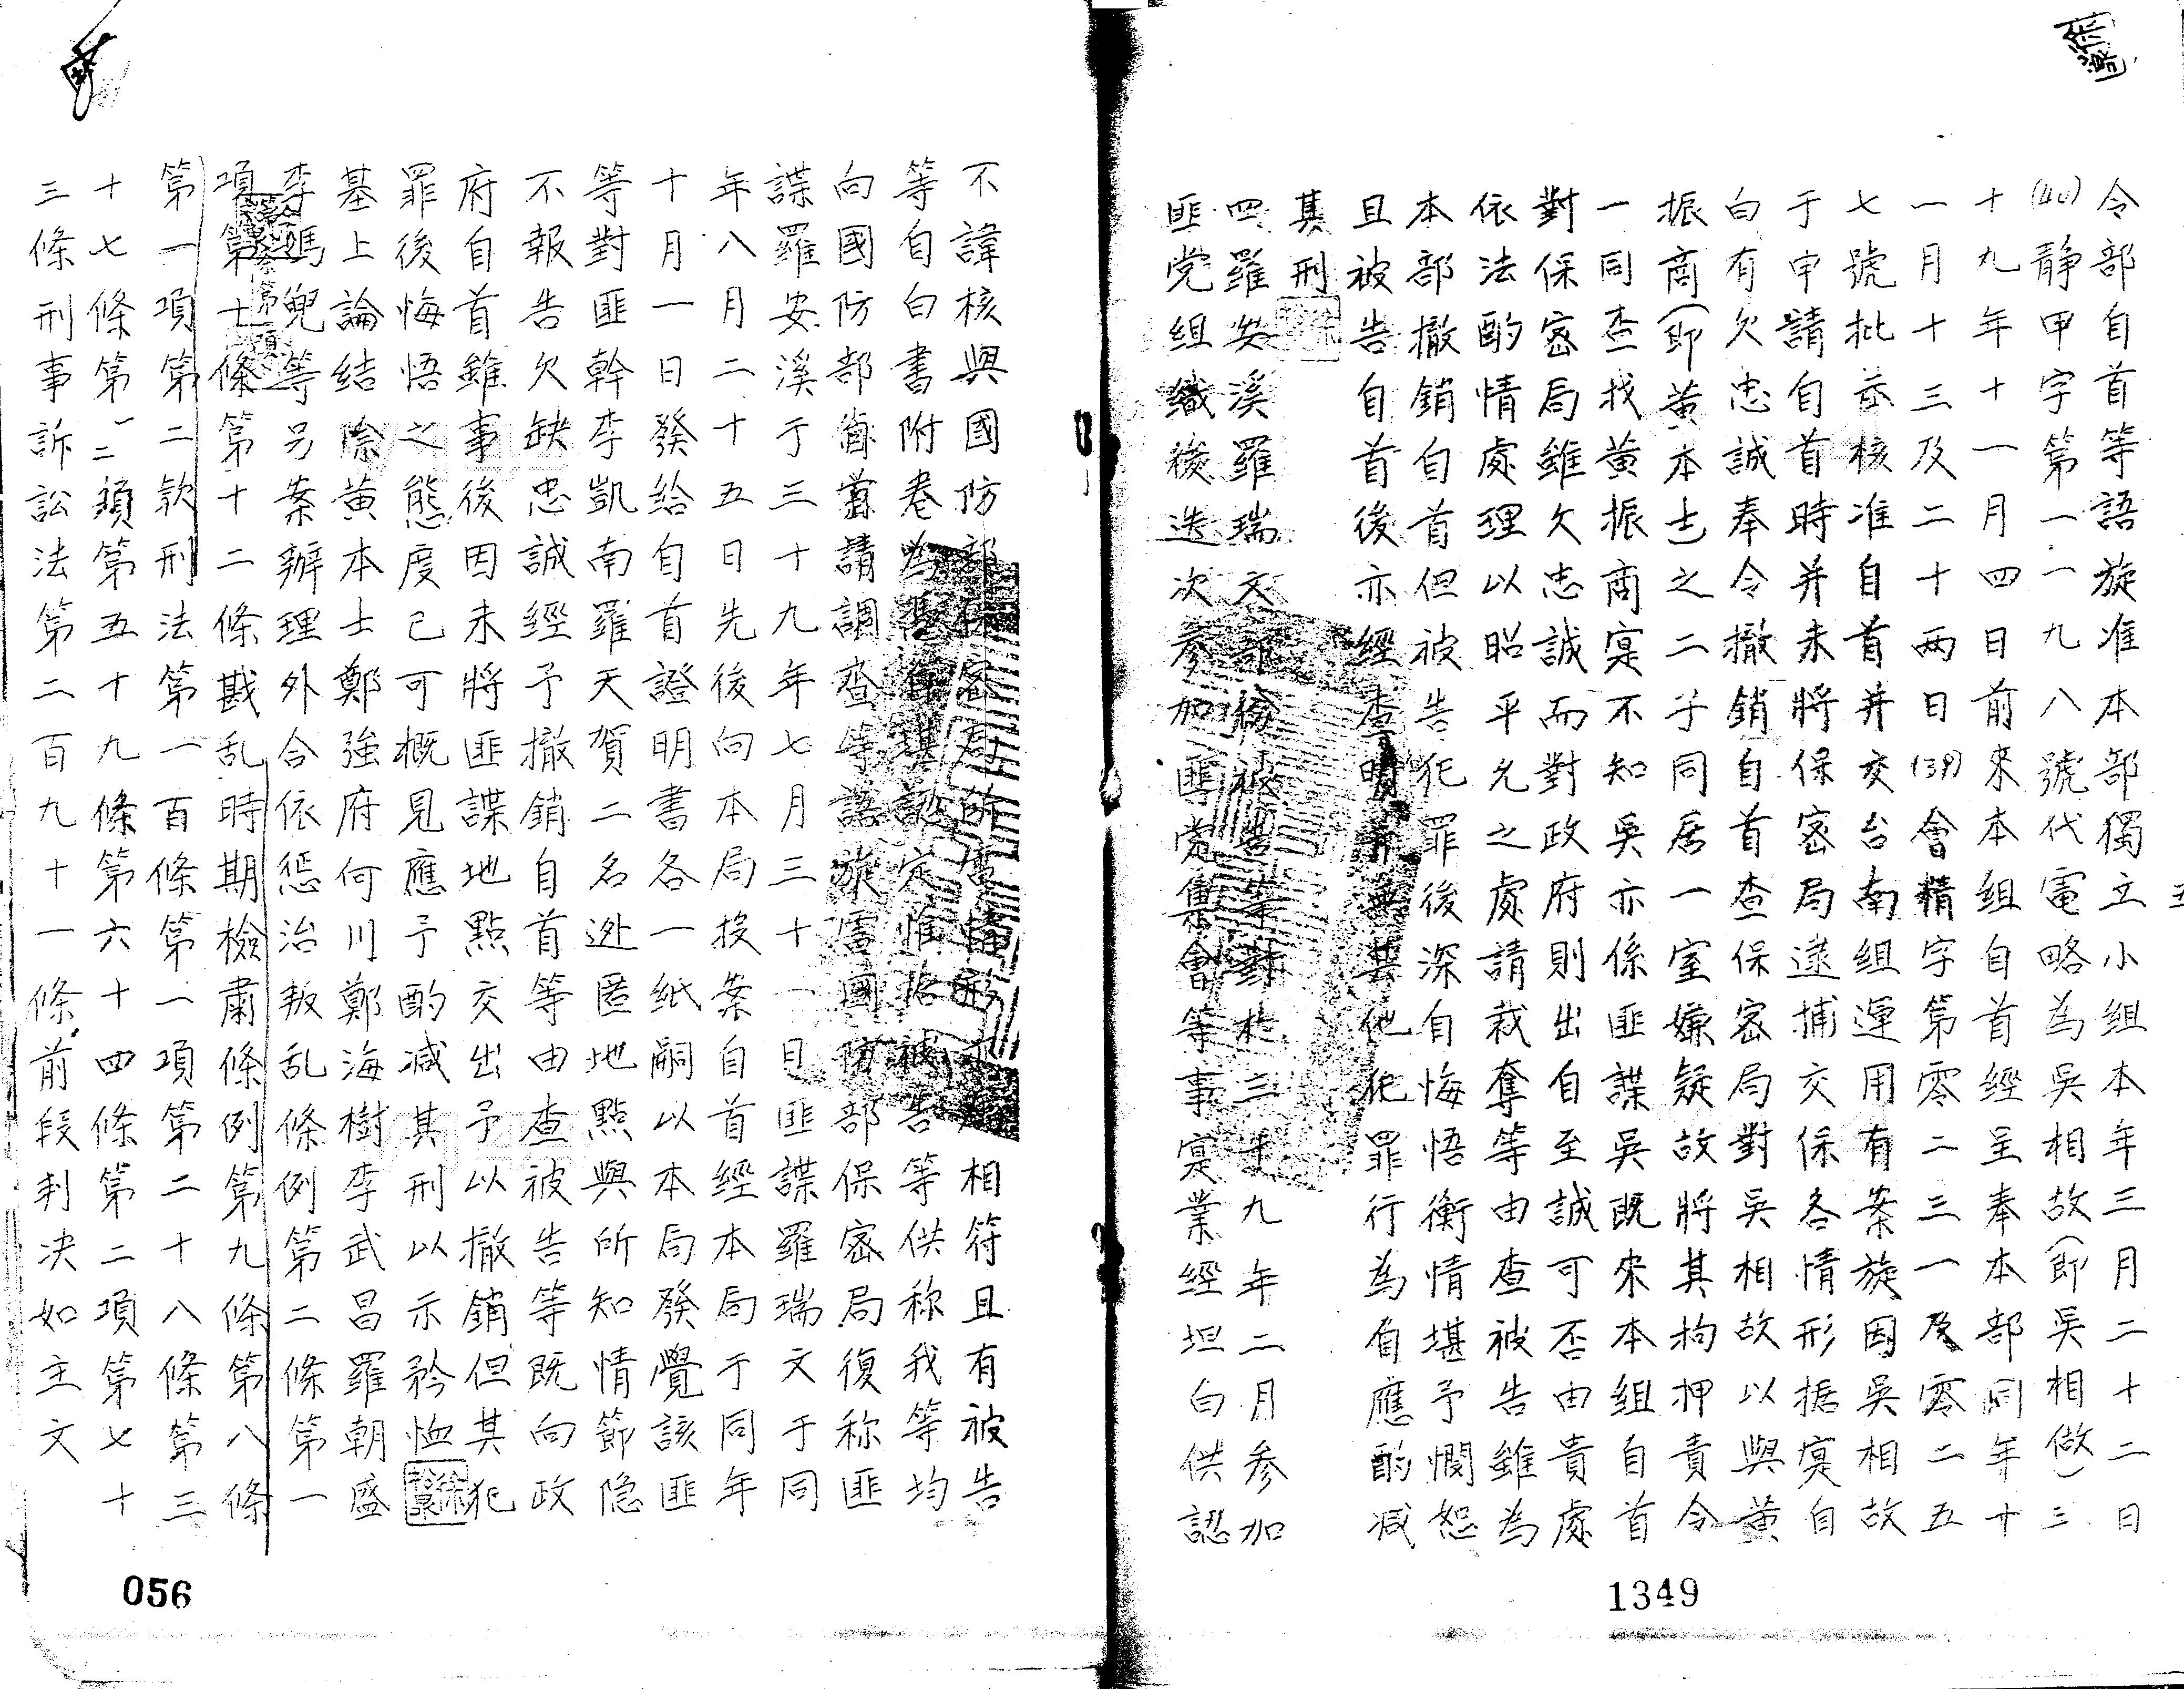 令部自首等語旋准本部獨立小組本年三月二十二日
(40)静甲字第一一九八號代電略為吳相故(即吳相做)三
十九年十一月四日前來本組自首經呈奉本部同年十
一月十三及二十两日(39)會精字第零二三一及零二五
七號批荅核准自首并交台南組運用有案旋因吳相故
于申請自首時并未將保密局逮捕交保各情形据寔自
白有欠忠誠奉令撤銷自首查保密局對吳相故以與黄
振商(即黄本士之二子同居一室嫌疑故將其拘押責令
一同查找黄振商寔不知吳亦係匪諜吳既來本組自首
對保密局雖欠忠誠而對政府則出自至誠可否由貴處
依法酌情處理以昭平允之處請裁奪等由查被告雖為
本部撤銷自首但被告犯罪後深自悔悟衡情堪予憫恕
且被告自首後亦經查明并無其他犯罪行為自應酌减
其刑
四羅安溪羅瑞文部份被告等對於三十九年二月参加
匪党組織後迭次參加匪党集會等事寔業經坦白供認
不諱核與國防部保密局所査情形相符且有被告
等自白書附卷為憑惟据被告等供称我等均
向國防部自首請調查等語旋國防部保密局復称匪
諜羅安溪于三十九年七月三十一日匪諜羅瑞文于同
年八月二十五日先後向本局投案自首經本局于同年
十月一日發給自首證明書各一紙嗣以本局發覺該匪
等對匪幹李凱南羅天賀二名逃匿地點與所知情節隐
不報告欠缺忠誠經予撤銷自首等由查被告等既向政
府自首雖事後因未將匪諜地點交出予以撤銷但其犯
罪後悔悟之態度已可概見應予酌减其刑以示矜恤
基上論結除黄本士鄭強府何川鄭海樹李武昌羅朝盛
李媽兜等另案辦理外合依懲治叛乱條例第二條第一
項第七條第十二條戡乱時期檢肅條例第九條第八條
第一項第二款刑法第一百條第一項第二十八條第三
十七條第一二項第五十九條第六十四條第二項第七十
三條刑事訴訟法第二百九十一條前段判决如主文
056
1349